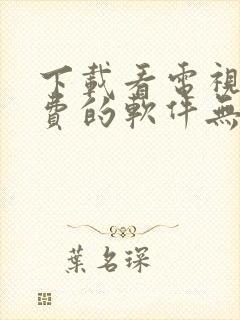 下載看電視
費的軟件無
葉名琛